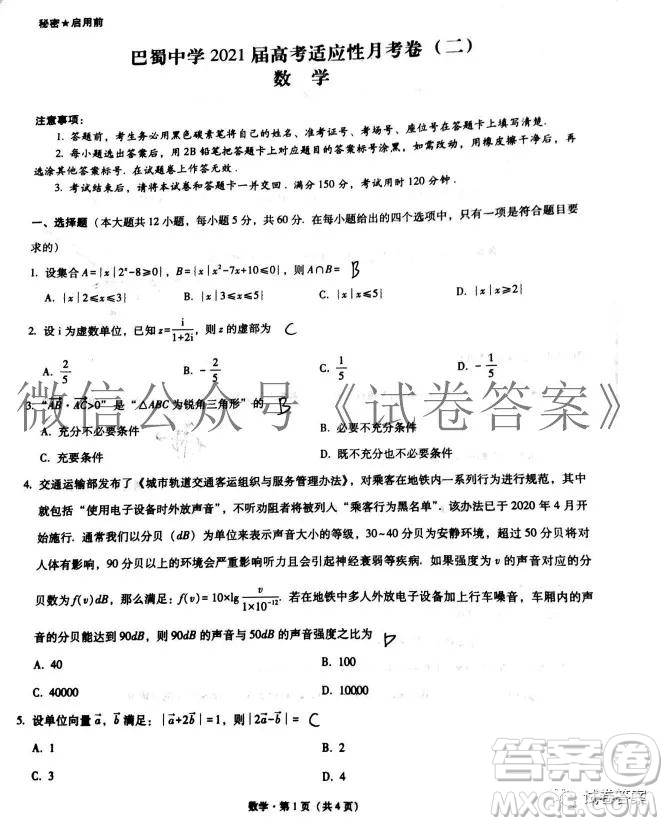 秘密★启用前
巴蜀中学 2021 届高考适应性月考卷（二）
数 学
注意事项：
1. 答题前，考生务必用黑色碳素笔将自己的姓名、准考证号、考场号、座位号在答题卡上填写清楚.
2. 每小题选出答案后，用 2B 铅笔把答题卡上对应题目的答案标号涂黑，如需改动，用橡皮擦干净后，再
选涂其他答案标号. 在试题卷上作答无效.
3. 考试结束后，请将本试卷和答题卡一并交回. 满分 150 分，考试用时 120 分钟.
一、选择题（本大题共 12 小题，每小题 5 分，共 60 分. 在每小题给出的四个选项中，只有一项是符合题目要
求的）
1. 设集合 A={x|2ˣ-8≥0}，B={x|x²-7x+10≤0}，则 A∩B= B
A. {x|2≤x≤3} B. {x|3≤x≤5} C. {x|x≤5} D. {x|x≥2}
2. 设 i 为虚数单位，已知 z=i/(1+2i)，则 z 的虚部为 C
A. 2/5 B. -2/5 C. 1/5 D. -1/5
微信公众号《试卷答案》
3. “AB·AC>0” 是 “△ABC 为锐角三角形” 的 B
A. 充分不必要条件 B. 必要不充分条件
C. 充要条件 D. 既不充分也不必要条件
4. 交通运输部发布了《城市轨道交通客运组织与服务管理办法》，对乘客在地铁内一系列行为进行规范，其中
就包括 “使用电子设备时外放声音”，不听劝阻者将被列入 “乘客行为黑名单”. 该办法已于 2020 年 4 月开
始施行. 通常我们以分贝（dB）为单位来表示声音大小的等级，30~40 分贝为安静环境，超过 50 分贝将对
人体有影响，90 分贝以上的环境会严重影响听力且会引起神经衰弱等疾病. 如果强度为 v 的声音对应的分
贝数为 f(v)dB，那么满足：f(v)=10×lg v/(1×10⁻¹²). 若在地铁中多人外放电子设备加上行车噪音，车厢内的声
音的分贝能达到 90dB，则 90dB 的声音与 50dB 的声音强度之比为 D
A. 40 B. 100
C. 40000 D. 10000
5. 设单位向量 a，b 满足：|a+2b|=1，则|2a-b|= C
A. 1 B. 2
C. 3 D. 4
数学·第 1 页（共 4 页）
试卷答案
答案圈
MXQE.COM